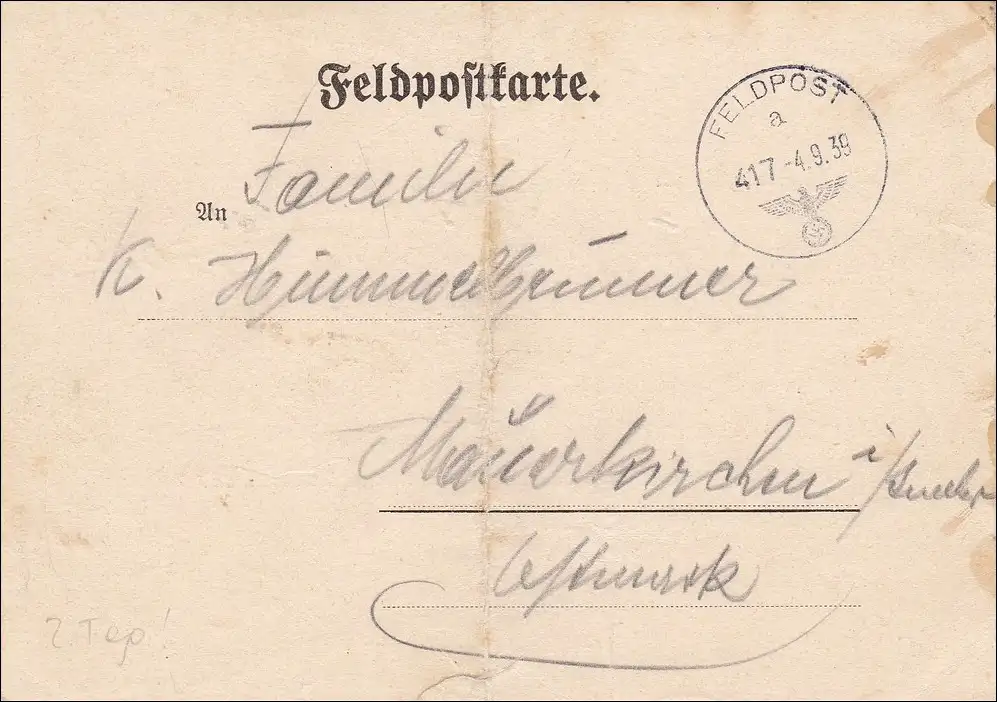 Feldpostkarte.
FELDPOST
a
417 -4.9.39
An Familie
K. Himmelhammer
Mauerkirchen i/
Ostmark
2. Tag!